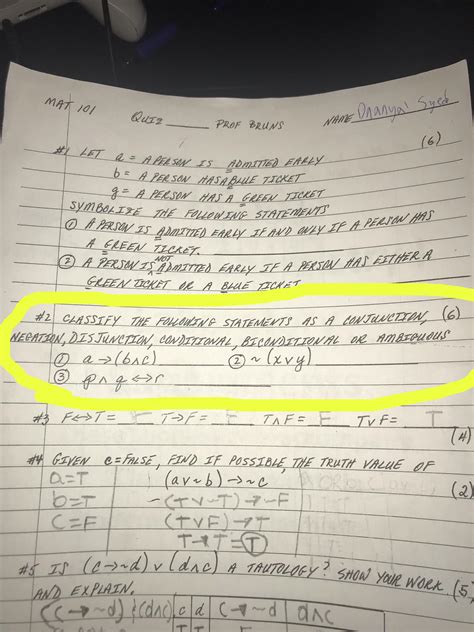 MAT 101
QUIZ ____ PROF BRUNS NAME Daanyal Syed
(6)
#1 LET a = A PERSON IS ADMITTED EARLY
b = A PERSON HAS A BLUE TICKET
g = A PERSON HAS A GREEN TICKET
SYMBOLIZE THE FOLLOWING STATEMENTS
① A PERSON IS ADMITTED EARLY IF AND ONLY IF A PERSON HAS
A GREEN TICKET.
② A PERSON IS NOT ADMITTED EARLY IF A PERSON HAS EITHER A
GREEN TICKET OR A BLUE TICKET
#2 CLASSIFY THE FOLLOWING STATEMENTS AS A CONJUNCTION, (6)
NEGATION, DISJUNCTION, CONDITIONAL, BICONDITIONAL OR AMBIGUOUS
① a→(b∧c) ② ~(x∨y)
③ p∧q↔r
#3 F↔T= F T→F= F T∧F= F T∨F= T
(4)
#4 GIVEN c=FALSE, FIND IF POSSIBLE, THE TRUTH VALUE OF
a=T (a∨~b)→~c (2)
b=T ~(T∨~T)→~F
C=F (T∨F)→T
T→T=T
#5 IS (c→~d)∨(d∧c) A TAUTOLOGY? SHOW YOUR WORK (5)
AND EXPLAIN.
(c→~d) (d∧c) c d c→~d d∧c